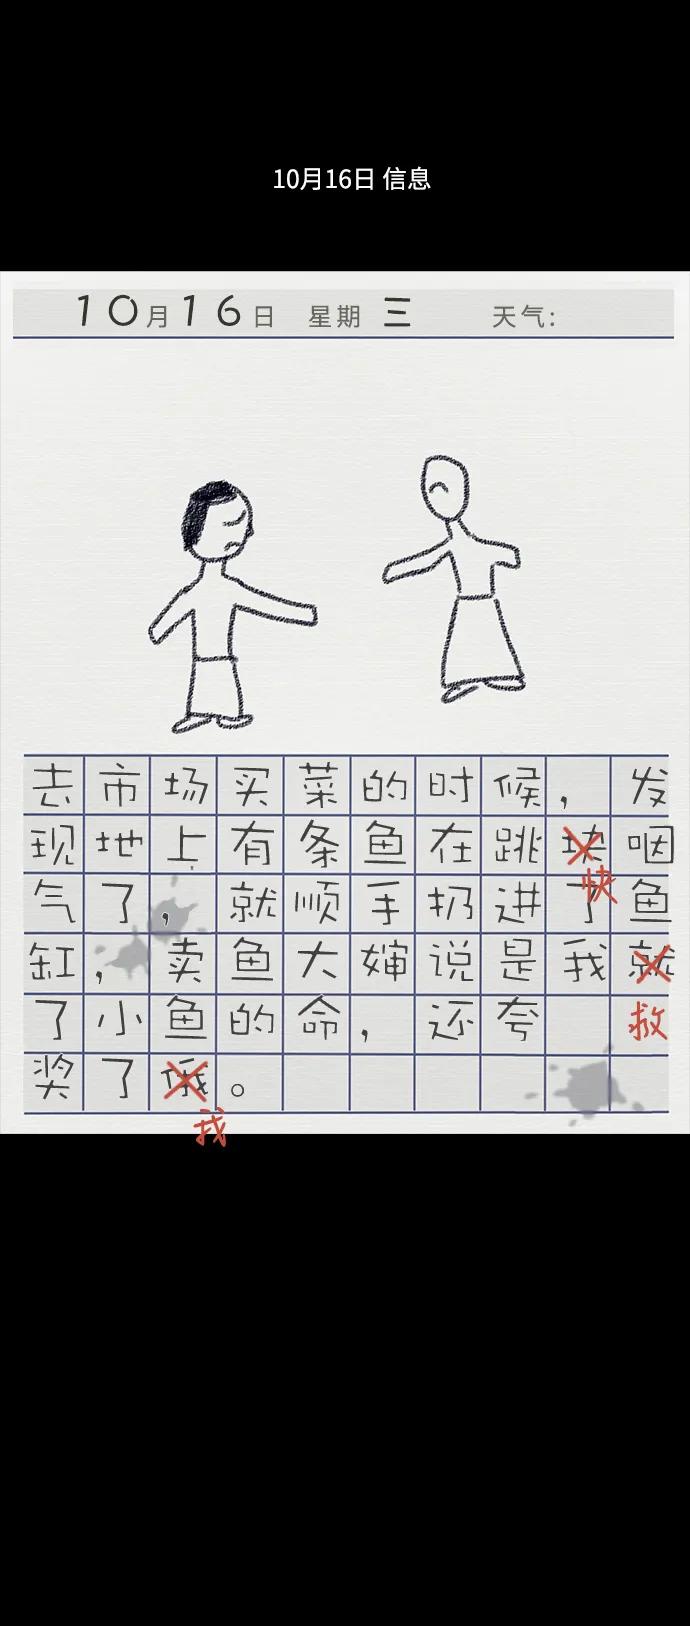 10月16日 信息
10月16日 星期三 天气:
去市场买菜的时候，发
现地上有条鱼在跳块咽
快
气了，就顺手扔进了鱼
缸，卖鱼大婶说是我就
了小鱼的命，还夸 救
奖了俄。
我